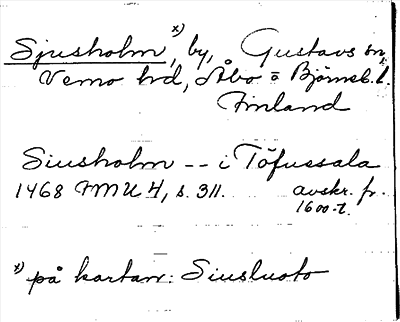 Sjusholm x), by, Gustavs sn,
Vemo hrd, Åbo o Björneb. l.
Finland
Siusholm -- i Töfussala
1468 FMU 4, s. 311. avskr. fr.
1600-t.
x) på kartan: Siusluoto